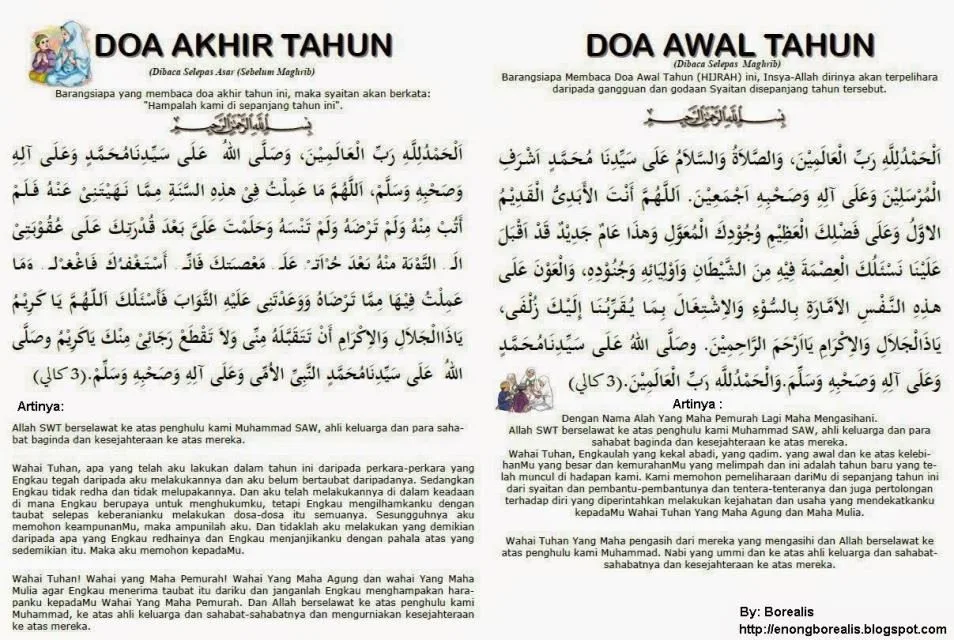 DOA AKHIR TAHUN
(Dibaca Selepas Asar (Sebelum Maghrib)
Barangsiapa yang membaca doa akhir tahun ini, maka syaitan akan berkata:
"Hampalah kami di sepanjang tahun ini".
بِسْــمِ اللهِ الرَّحْمٰنِ الرَّحِيْمِ
اَلْحَمْدُلِلّٰهِ رَبِّ الْعَالَمِيْنَ، وَصَلَّى اللهُ عَلَى سَيِّدِنَامُحَمَّدٍ وَعَلَى آلِهِ
وَصَحْبِهِ وَسَلَّمْ، اَللّٰهُمَّ مَا عَمِلْتُ فِيْ هذِهِ السَّنَةِ مِمَّا نَهَيْتَنِيْ عَنْهُ فَلَمْ
أَتُبْ مِنْهُ وَلَمْ تَرْضَهُ وَلَمْ تَنْسَهُ وَحَلَمْتَ عَلَيَّ بَعْدَ قُدْرَتِكَ عَلَى عُقُوْبَتِيْ
التَّوْبَةِ مِنْهُ بَعْدَ عَلَى مَعْصِيَتِكَ فَاِنِّيْ أَسْتَغْفِرُكَ فَاغْفِرْلِيْ وَمَا
عَمِلْتُ فِيْهَا مِمَّا تَرْضَاهُ وَوَعَدْتَنِي عَلَيْهِ الثَّوَابَ فَأَسْئَلُكَ اَللّٰهُمَّ يَا كَرِيْمُ
يَاذَاالْجَلَالِ وَالإِكْرَامِ أَنْ تَتَقَبَّلَهُ مِنِّي وَلاَ تَقْطَعْ رَجَائِيْ مِنْكَ يَاكَرِيْمُ وَصَلَّى
اللهُ عَلَى سَيِّدِنَامُحَمَّدٍ النَّبِيِّ الأُمِّي وَعَلَى آلِهِ وَصَحْبِهِ وَسَلَّمْ.(3 كالي)
Artinya:
Allah SWT berselawat ke atas penghulu kami Muhammad SAW, ahli keluarga dan para saha-
bat baginda dan kesejahteraan ke atas mereka.
Wahai Tuhan, apa yang telah aku lakukan dalam tahun ini daripada perkara-perkara yang
Engkau tegah daripada aku melakukannya dan aku belum bertaubat daripadanya. Sedangkan
Engkau tidak redha dan tidak melupakannya. Dan aku telah melakukannya di dalam keadaan
di mana Engkau berupaya untuk menghukumku, tetapi Engkau mengilhamkanku dengan
taubat selepas keberanianku melakukan dosa-dosa itu semuanya. Sesungguhnya aku
memohon keampunanMu, maka ampunilah aku. Dan tidaklah aku melakukan yang demikian
daripada apa yang Engkau redhainya dan Engkau menjanjikanku dengan pahala atas yang
sedemikian itu. Maka aku memohon kepadaMu.
Wahai Tuhan! Wahai yang Maha Pemurah! Wahai Yang Maha Agung dan wahai Yang Maha
Mulia agar Engkau menerima taubat itu dariku dan janganlah Engkau menghampakan hara-
panku kepadaMu Wahai Yang Maha Pemurah. Dan Allah berselawat ke atas penghulu kami
Muhammad, ke atas ahli keluarga dan sahabat-sahabatnya dan mengurniakan kesejahteraan
ke atas mereka.
DOA AWAL TAHUN
(Dibaca Selepas Maghrib)
Barangsiapa Membaca Doa Awal Tahun (HIJRAH) ini, Insya-Allah dirinya akan terpelihara
daripada gangguan dan godaan Syaitan disepanjang tahun tersebut.
بِسْــمِ اللهِ الرَّحْمٰنِ الرَّحِيْمِ
اَلْحَمْدُلِلّٰهِ رَبِّ الْعَالَمِيْنَ، وَالصَّلَاةُ وَالسَّلَامُ عَلَى سَيِّدِنَا مُحَمَّدٍ اَشْرَفِ
الْمُرْسَلِيْنَ وَعَلَى آلِهِ وَصَحْبِهِ اَجْمَعِيْنَ. اَللّٰهُمَّ أَنْتَ الأَبَدِىُّ الْقَدِيْمُ
الاَوَّلُ وَعَلَى فَضْلِكَ الْعَظِيْمِ وُجُوْدِكَ الْمُعَوَّلِ وَهٰذَا عَامٌ جَدِيْدٌ قَدْ اَقْبَلَ
عَلَيْنَا نَسْئَلُكَ الْعِصْمَةَ فِيْهِ مِنَ الشَّيْطَانِ وَاَوْلِيَائِهِ وَجُنُوْدِهِ، وَالْعَوْنَ عَلَى
هذِهِ النَّفْسِ الاَمَّارَةِ بِالسُّوْءِ وَالاِشْتِغَالَ بِمَا يُقَرِّبُنَا إِلَيْكَ زُلْفَى،
يَاذَالْجَلَالِ وَالإِكْرَامِ يَااَرْحَمَ الرَّاحِمِيْنَ. وصَلَّى اللهُ عَلَى سَيِّدِنَامُحَمَّدٍ
وَعَلَى آلِهِ وَصَحْبِهِ وَسَلَّمَ.وَالْحَمْدُلِلّٰهِ رَبِّ الْعَالَمِيْنَ.(3 كالي)
Artinya :
Dengan Nama Alah Yang Maha Pemurah Lagi Maha Mengasihani.
Allah SWT berselawat ke atas penghulu kami Muhammad SAW, ahli keluarga dan para
sahabat baginda dan kesejahteraan ke atas mereka.
Wahai Tuhan, Engkaulah yang kekal abadi, yang qadim. yang awal dan ke atas kelebi-
hanMu yang besar dan kemurahanMu yang melimpah dan ini adalah tahun baru yang te-
lah muncul di hadapan kami. Kami memohon pemeliharaan dariMu di sepanjang tahun ini
dari syaitan dan pembantu-pembantunya dan tentera-tenteranya dan juga pertolongan
terhadap diri yang diperintahkan melakukan kejahatan dan usaha yang mendekatkanku
kepadaMu Wahai Tuhan Yang Maha Agung dan Maha Mulia.
Wahai Tuhan Yang Maha pengasih dari mereka yang mengasihi dan Allah berselawat ke
atas penghulu kami Muhammad. Nabi yang ummi dan ke atas ahli keluarga dan sahabat-
sahabatnya dan kesejahteraan ke atas mereka.
By: Borealis
http://enongborealis.blogspot.com